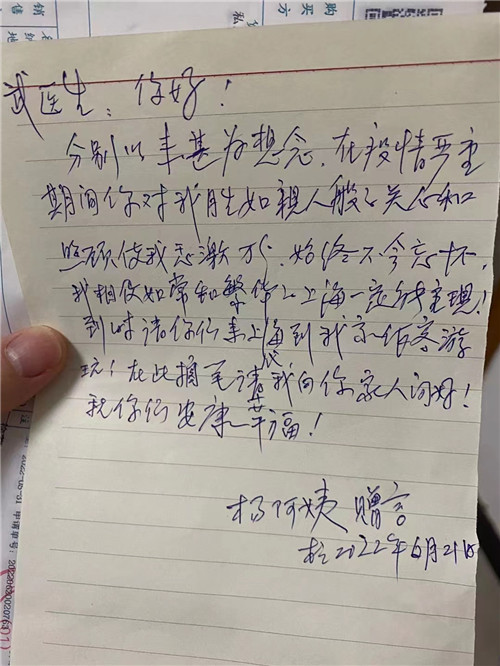 销
售
购
买
方
武医生：你好！
分别以来甚为想念，在疫情严重
期间你对我月生如親人般的关心和
照顾使我感激不尽，始终不会忘怀，
我相信如常和繁华的上海一定能重现！
到时请你们来上海到我家作客游
玩！在此搁笔请代我向你家人问好！
祝你们安康幸福！
杨阿姨 赠言
於2022年6月21日
2022-05-31 申请单号：